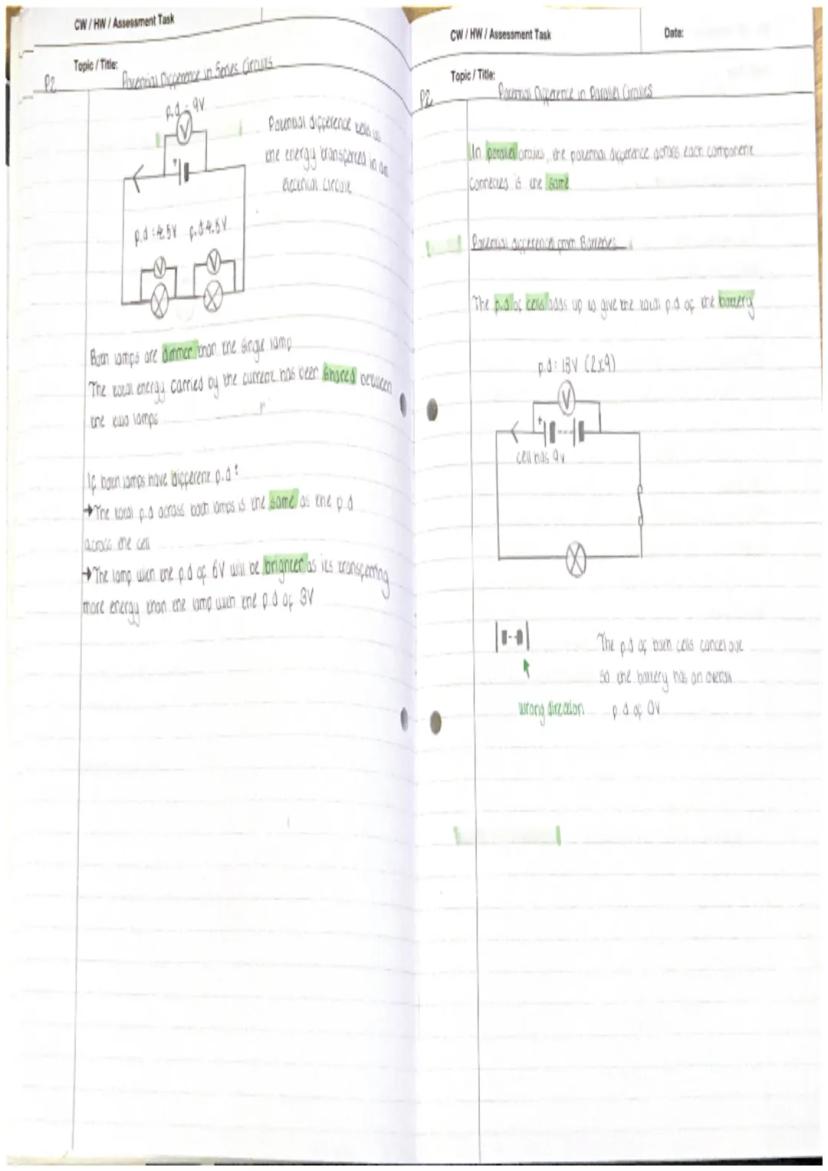 CW / HW / Assessment Task
Topic / Title:
P2
Potential Difference in Series Circuits
p.d = 9V
V
Potential difference tells us
the energy transferred in an
electrical circuit
+
p.d = 4.5V p.d 4.5V
V V
Both lamps are dimmer than the single lamp
The total energy carried by the current has been shared between
the two lamps
If both lamps have different p.d:
→The total p.d across both lamps is the same as the p.d
across the cell
→The lamp with the p.d of 6V will be brighter as its transferring
more energy than the lamp with the p.d of 3V
CW / HW / Assessment Task Date:
Topic / Title:
P2
Potential Difference in Parallel Circuits
In parallel circuits, the potential difference across each component
connected is the same
Potential difference from Batteries
The p.d of cells adds up to give the total p.d of the battery
p.d: 18V (2x9)
V
+
cell has 9v
The p.d of both cells cancel out
so the battery has an overall
wrong direction p.d of 0V